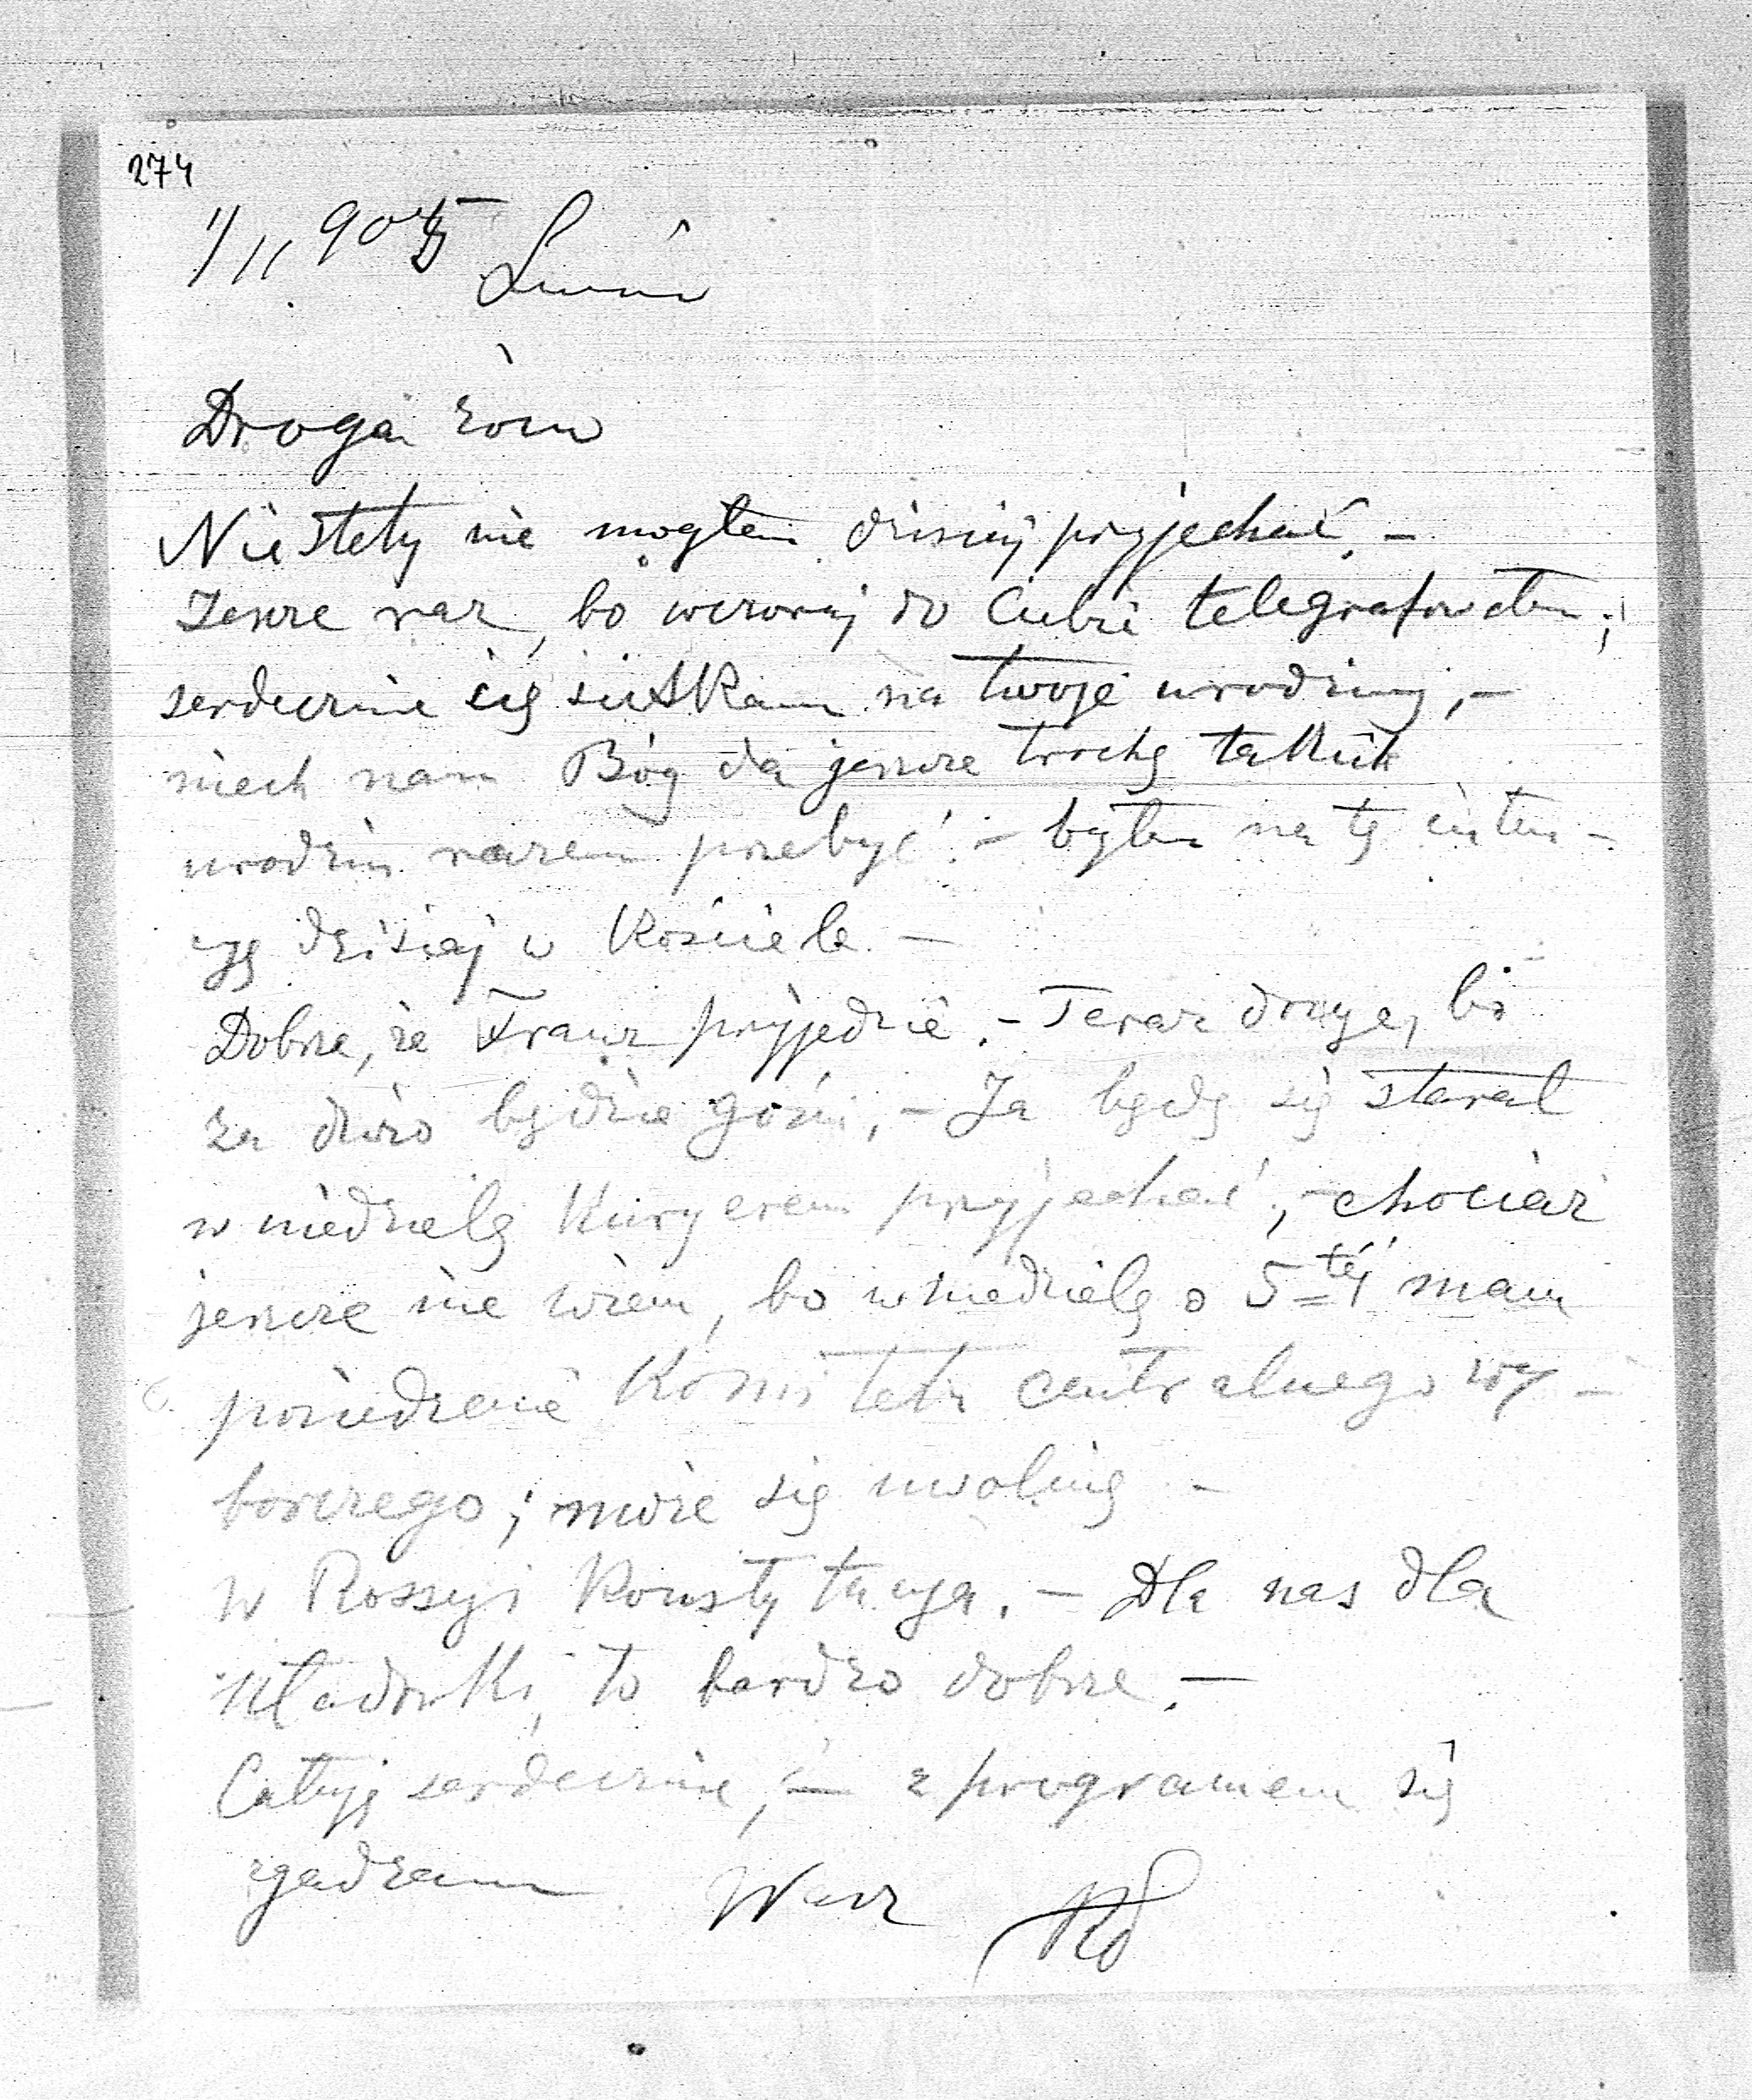 274
1/11 905 Lwów
Droga żono
Niestety nie mogłem dzisiaj przyjechać. –
Jeszcze raz, bo wczoraj do Ciebie telegrafowałem;
serdecznie cię ściskam na twoje urodziny, –
niech nam Bóg da jeszcze trochę takich
urodzin razem przebyć. – byłem na tę inten–
cyę dzisiaj w Kościele –
Dobrze, że Franz przyjedzie. – Teraz drogę, bo
za dużo będzie gości, – Ja będę się starał
w niedzielę Kuryerem przyjechać, – chociaż
jeszcze nie wiem, bo w niedzielę o 5tej mam
posiedzenie Komitetu centralnego wy–
borczego; może się uwolnię –
w Rossyi Konstytucya. – Dla nas dla
Kładówki, to bardzo dobrze. –
Całuję serdecznie, – z programem się
zgadzam Wasz